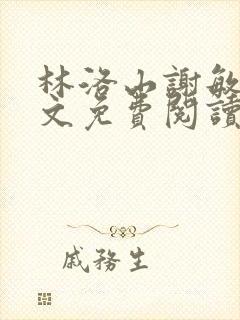 林洛山謝敏
文免費閱讀
戚務生